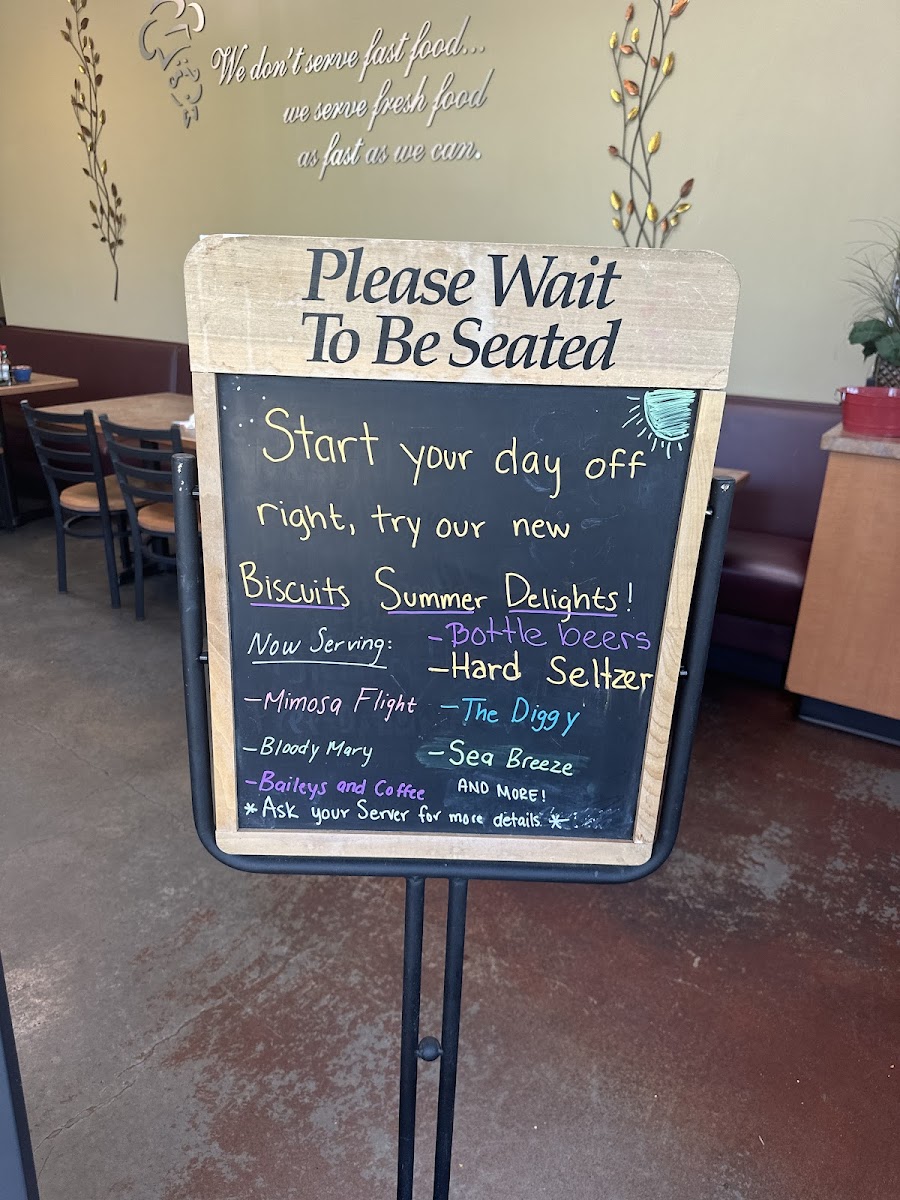 We don't serve fast food...
we serve fresh food
as fast as we can.
Please Wait
To Be Seated
Start your day off
right, try our new
Biscuits Summer Delights!
Now Serving:
- Mimosa Flight
- Bloody Mary
- Baileys and Coffee
- Bottle beers
- Hard Seltzer
- The Diggy
- Sea Breeze
AND MORE!
* Ask your Server for more details. *